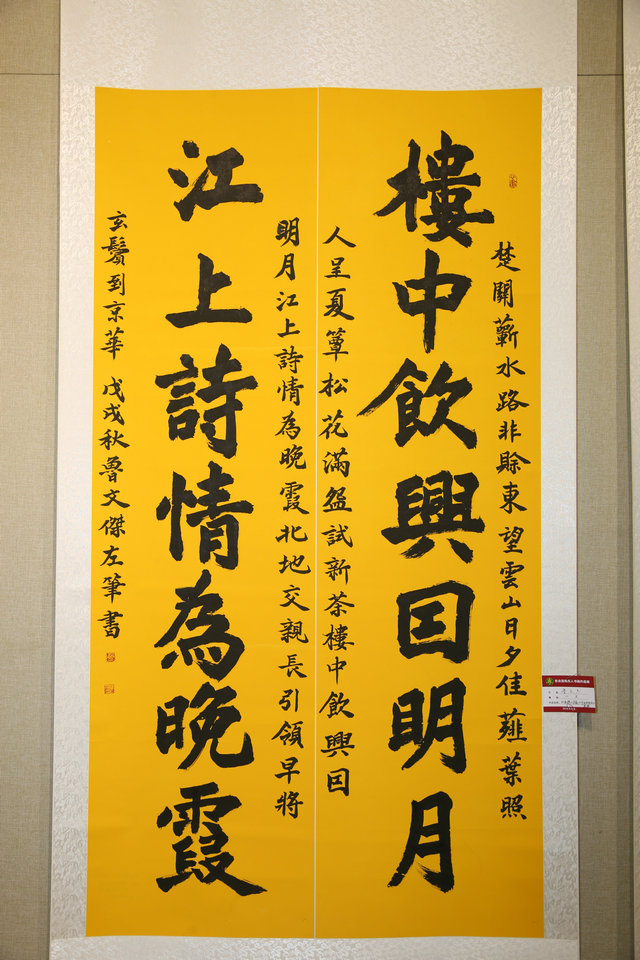 樓中飲興因明月
江上詩情為晚霞
楚關蘄水路非賒東望雲山日夕佳薤葉照
人呈夏簟松花滿盌試新茶樓中飲興因
明月江上詩情為晚霞北地交親長引領早將
玄鬢到京華 戊戌秋魯文傑左筆書